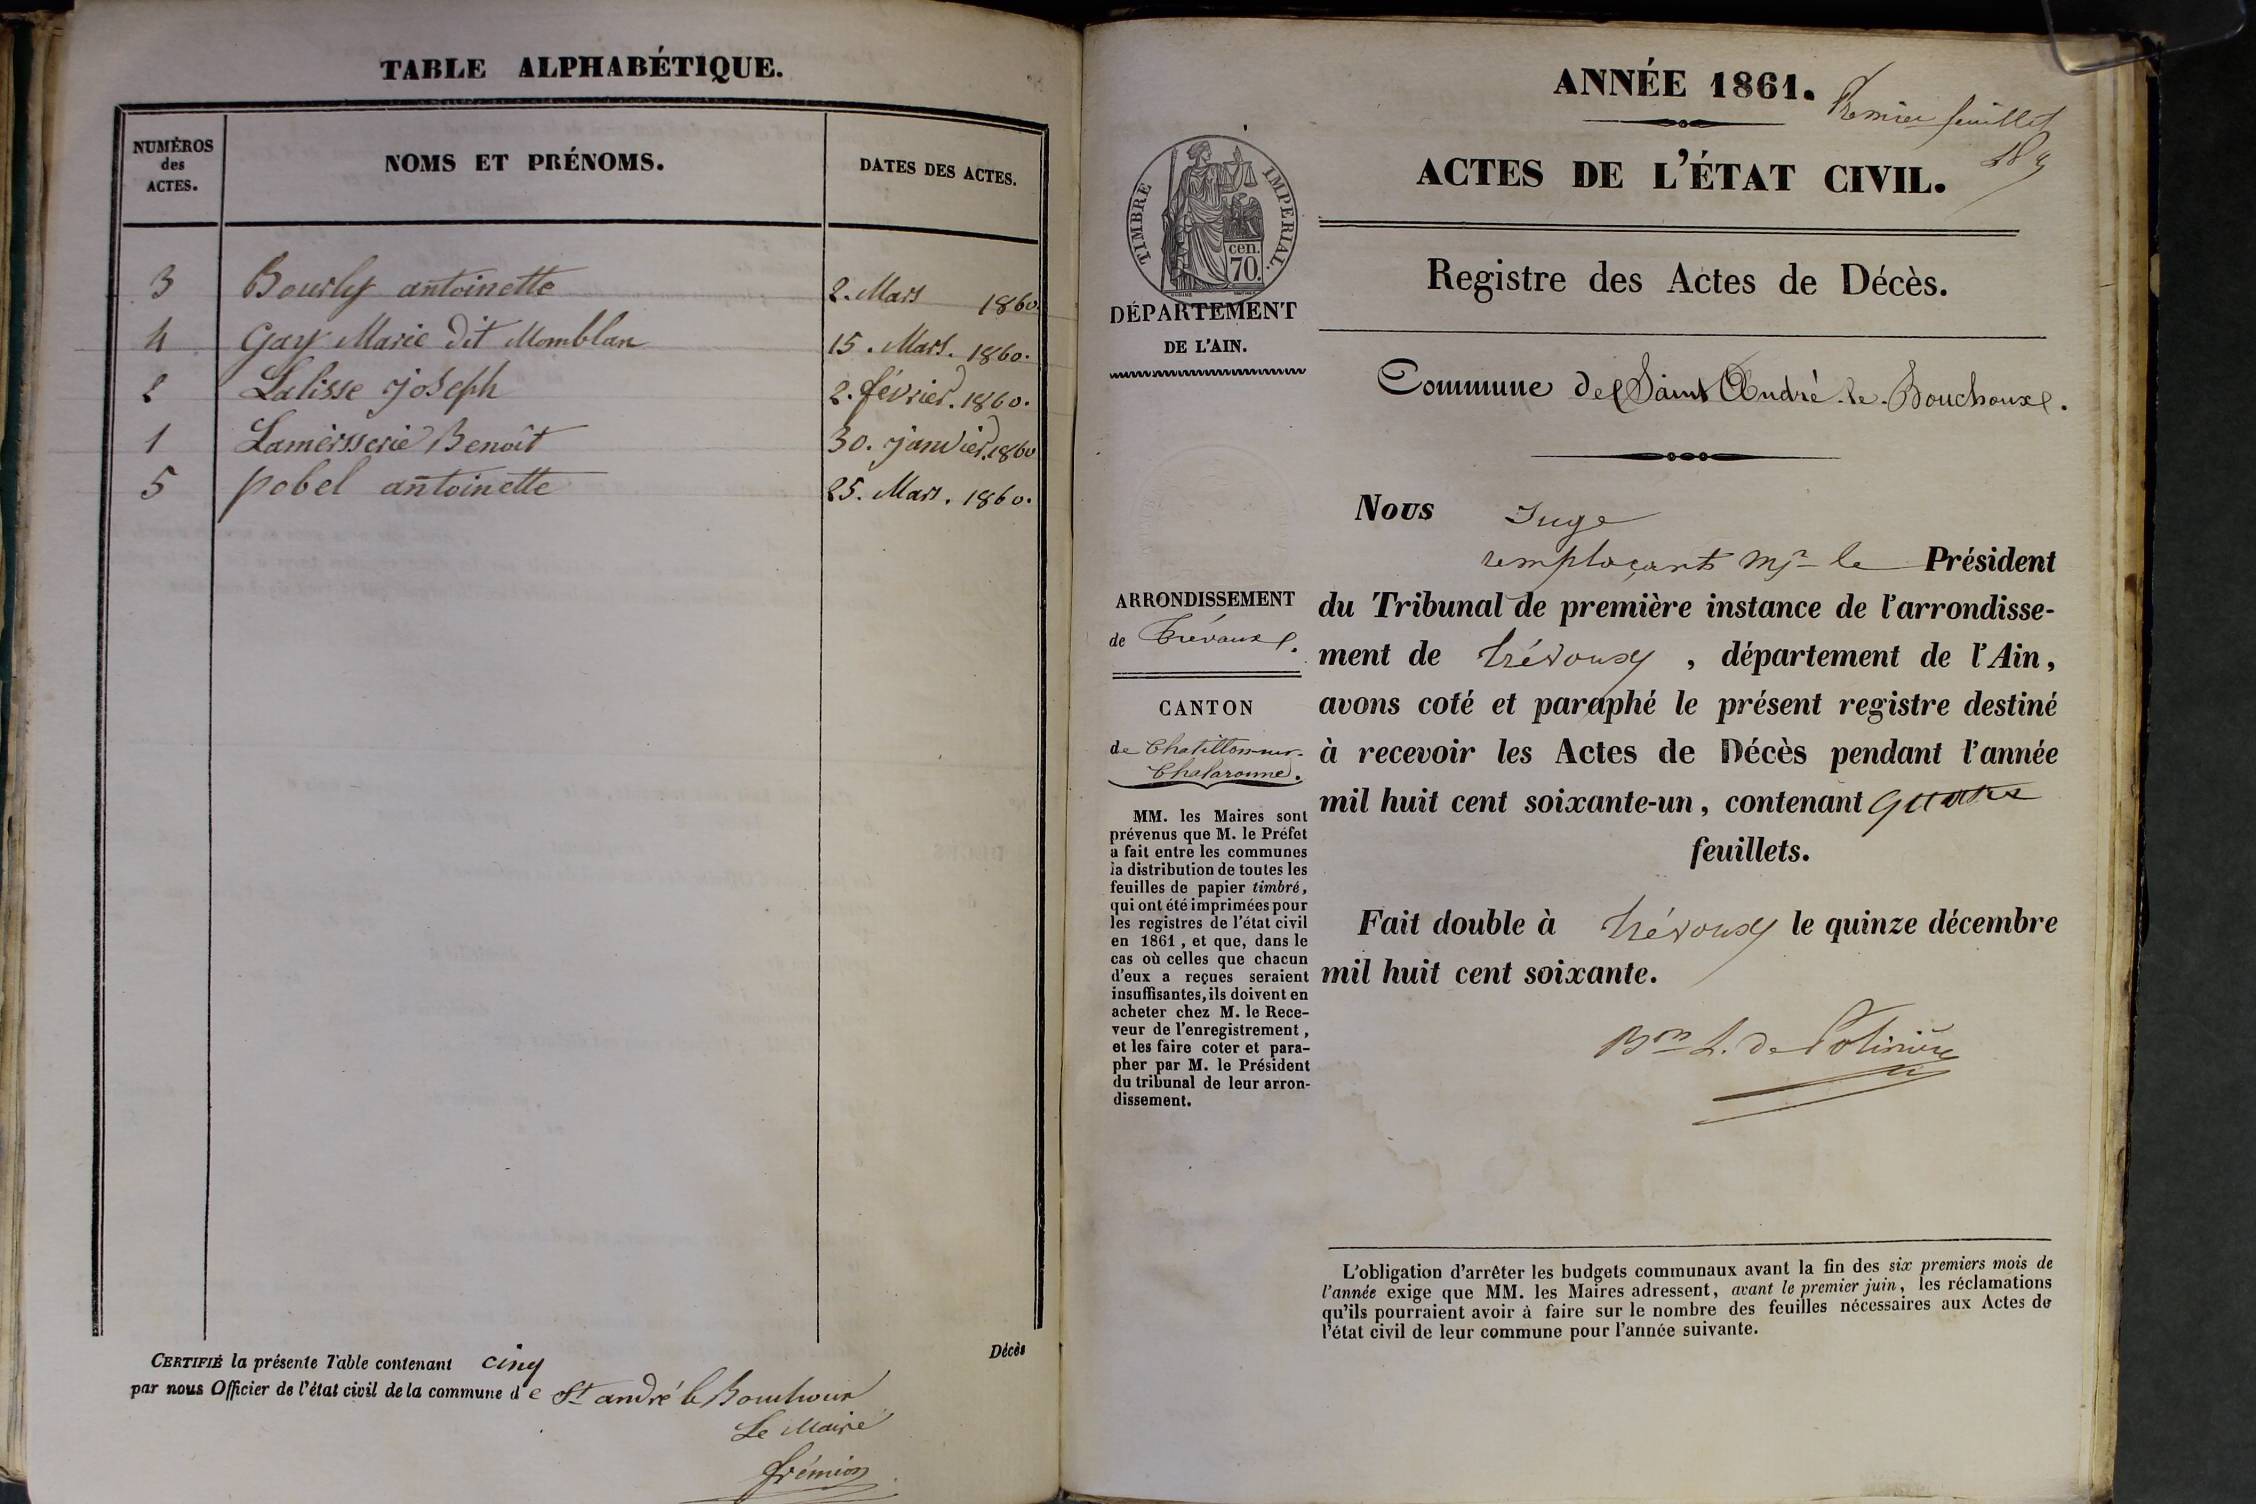 TABLE ALPHABÉTIQUE.
NUMÉROS
des
ACTES.
NOMS ET PRÉNOMS.
DATES DES ACTES.
3 Bourly antoinette 2. Mars 1860.
4 Gay Marie dit Momblan 15. Mars. 1860.
2 Lalisse joseph 2. février. 1860.
1 Benoît 30. janvier. 1860
5 pobel antoinette 25. Mars. 1860.
CERTIFIÉ la présente Table contenant cinq Décès
par nous Officier de l'état civil de la commune de St andré le Bouchoux
Le Maire
frémion
ANNÉE 1861.
Premier feuillet
ACTES DE L'ÉTAT CIVIL.
TIMBRE IMPÉRIAL.
cen.
70.
Registre des Actes de Décès.
DÉPARTEMENT
DE L'AIN.
Commune de Saint André-le-Bouchoux.
Nous Juge
remplaçant Mr le Président
du Tribunal de première instance de l'arrondisse-
ment de trévoux, département de l'Ain,
avons coté et paraphé le présent registre destiné
à recevoir les Actes de Décès pendant l'année
mil huit cent soixante-un, contenant quatre
feuillets.
Fait double à trévoux le quinze décembre
mil huit cent soixante.
Bon L. de
ARRONDISSEMENT
de Trévoux.
CANTON
de Chatillon-sur-
Chalaronne.
MM. les Maires sont
prévenus que M. le Préfet
a fait entre les communes
la distribution de toutes les
feuilles de papier timbré,
qui ont été imprimées pour
les registres de l'état civil
en 1861, et que, dans le
cas où celles que chacun
d'eux a reçues seraient
insuffisantes, ils doivent en
acheter chez M. le Rece-
veur de l'enregistrement,
et les faire coter et para-
pher par M. le Président
du tribunal de leur arron-
dissement.
L'obligation d'arrêter les budgets communaux avant la fin des six premiers mois de
l'année exige que MM. les Maires adressent, avant le premier juin, les réclamations
qu'ils pourraient avoir à faire sur le nombre des feuilles nécessaires aux Actes de
l'état civil de leur commune pour l'année suivante.